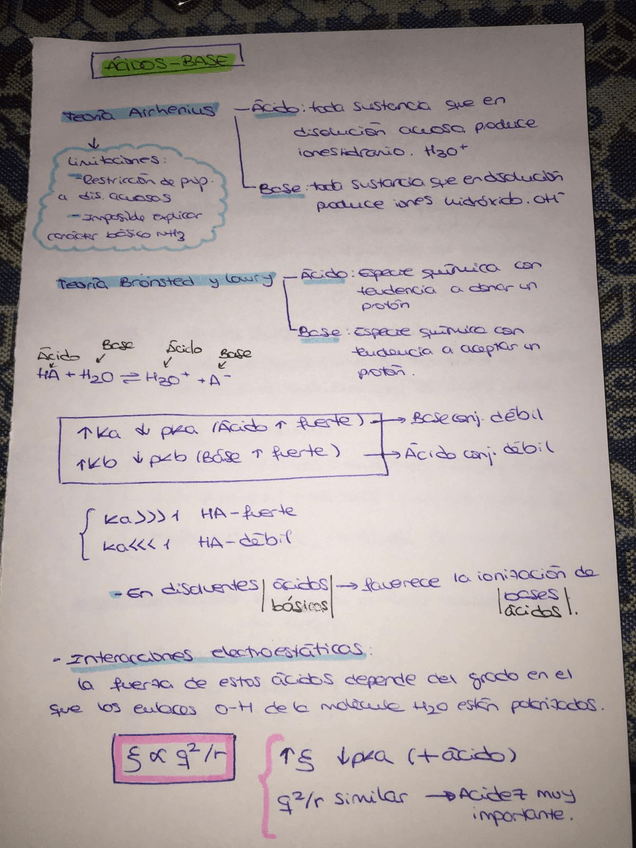 ÁCIDOS-BASE
Teoría Arrhenius - Ácido: toda sustancia que en
disolución acuosa produce
iones hidronio. H3O+
Limitaciones:
- Restricción de prop.
a dis. acuosas
- Imposible explicar
carácter básico NH3
Base: toda sustancia que en disolución
produce iones hidróxido. OH-
Teoría Brönsted y Lowry - Ácido: Especie química con
tendencia a donar un
protón
Base: Especie química con
tendencia a aceptar un
protón.
Ácido Base Ácido Base
HA + H2O ⇌ H3O+ + A-
↑Ka ↓ pKa (Ácido ↑ fuerte) → Base conj. débil
↑Kb ↓ pKb (Base ↑ fuerte) → Ácido conj. débil
Ka>>>1 HA-fuerte
Ka<<<1 HA-débil
- En disolventes |ácidos| → favorece la ionización de |bases|
|básicos| |ácidos|.
- Interacciones electroestáticas:
la fuerza de estos ácidos depende del grado en el
que los enlaces O-H de la molécula H2O están polarizados.
ξ ∝ q²/r
↑ξ ↓pKa (+ácido)
q²/r similar → Acidez muy
importante.